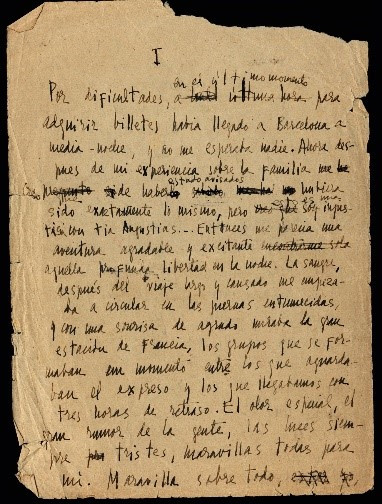 I
en el último momento
Por dificultades, a última hora para
adquirir billetes había llegado a Barcelona a
media-noche, y no me esperaba nadie. Ahora des-
pues de mi experiencia sobre la familia me
Creo de haber estado avisados hubiera
sido exactamente lo mismo, pero
tia Angustias... Entonces me parecía una
aventura agradable y excitante sola
aquella profunda libertad en la noche. La sangre,
después del viaje largo y cansado me empeza-
ba a circular en las piernas entumecidas,
y con una sonrisa de agrado miraba la gran
estación de Francia, los grupos que se for-
maban en momentó entre los que aguarda-
ban el expreso y los que llegabamos con
tres horas de retraso. El olor especial, el
gran rumor de la gente, las luces siem-
pre tristes, maravillas todas para
mi. Maravilla sobre todo,